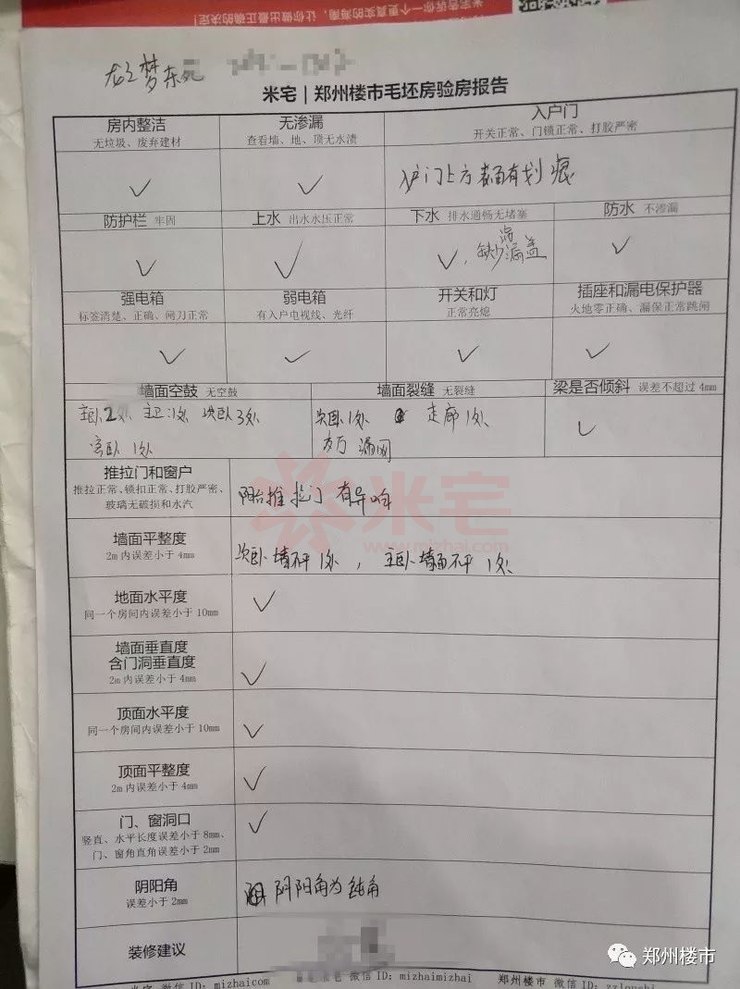 米宅告诉你一个更真实的海南,让你做出最正确的决定!
龙之梦东苑
米宅 | 郑州楼市毛坯房验房报告
房内整洁
无垃圾、废弃建材
无渗漏
查看墙、地、顶无水渍
入户门
开关正常、门锁正常、打胶严密
✓
✓
入户门上方表面有划痕
防护栏 牢固
上水 出水水压正常
下水 排水通畅无堵塞
防水 不渗漏
✓
✓
✓, 缺少漏盖
✓
强电箱
标签清楚、正确、闸刀正常
弱电箱
有入户电视线、光纤
开关和灯
正常亮熄
插座和漏电保护器
火地零正确、漏保正常跳闸
✓
✓
✓
✓
墙面空鼓 无空鼓
墙面裂缝 无裂缝
梁是否倾斜 误差不超过4mm
主卧2处 主卫1处 次卧3处
客卧1处
次卧1处 走廊1处
漏网
✓
推拉门和窗户
推拉正常、锁扣正常、打胶严密、
玻璃无破损和水汽
阳台推拉门有异响
米宅
www.mizhai.com
墙面平整度
2m内误差小于4mm
次卧墙面不平1处, 主卧墙面不平1处
地面水平度
同一个房间内误差小于10mm
✓
墙面垂直度
含门洞垂直度
2m内误差小于4mm
✓
顶面水平度
同一个房间内误差小于10mm
✓
顶面平整度
2m内误差小于4mm
✓
门、窗洞口
竖直、水平长度误差小于8mm、
门、窗角直角误差小于2mm
✓
阴阳角
误差小于2mm
阴阳角为钝角
装修建议
微信ID: mizhaicom
微信ID: mizhaimizhai
郑州楼市 微信ID: zzloushi
郑州楼市